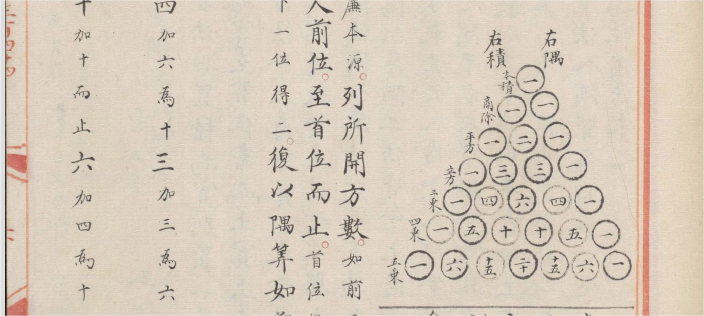 右隅
右積
本積 一
商除 一 一
平方 一 二 一
立方 一 三 三 一
三乘 一 四 六 四 一
四乘 一 五 十 十 五 一
五乘 一 六 十五 二十 十五 六 一
廉本源。列所開方數。如前
入前位。至首位而止。首位
下一位得二。復以隅筭如
四加六為十三加三為六
十加十而止六加四為十